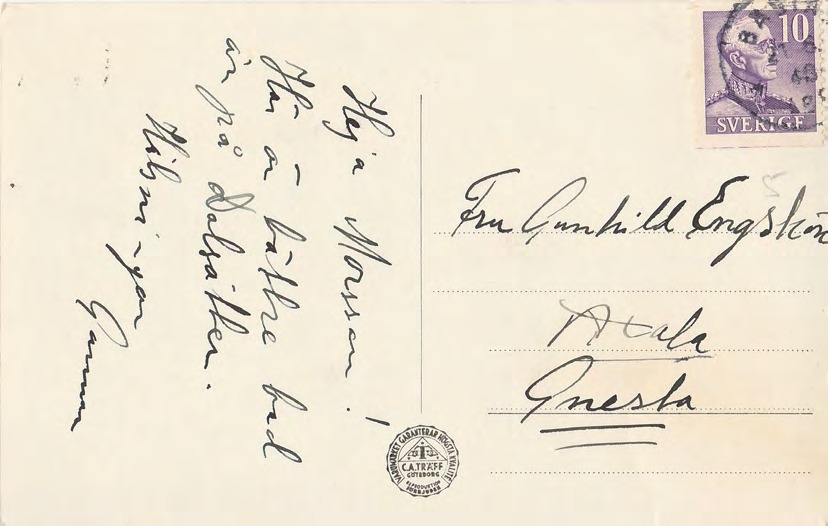 Heja Morsan!
Här är bättre bad
än på Dalsätter.
Hälsningar
Gunnar
10
SVERIGE
BÅSTAD
Fru Gunhild Engström
Axala
Gnesta
VARUMÄRKET GARANTERAR HÖGSTA KVALITÉ
C.A.TRÄFF
GÖTEBORG
REPRODUKTION
FÖRBJUDEN